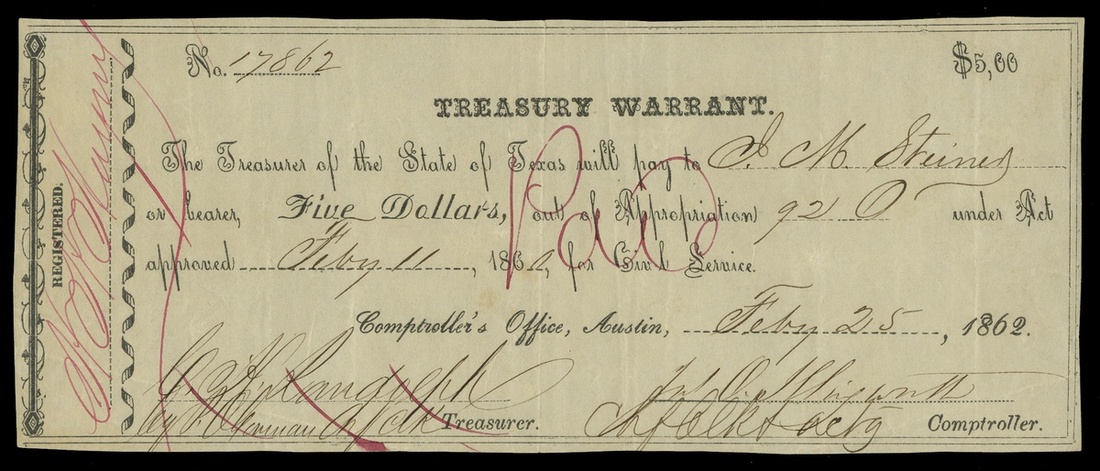 No. 17862 $5,00
TREASURY WARRANT.
The Treasurer of the State of Texas will pay to J. M. Steiner
or bearer, Five Dollars, out of Appropriation 92 O under Act
approved Feby 11, 186, for Civil Service.
Paid
Comptroller's Office, Austin, Feby 25, 1862.
Randolph
by Chf Clk Treasurer.
Chf Clk & actg Comptroller.
REGISTERED.